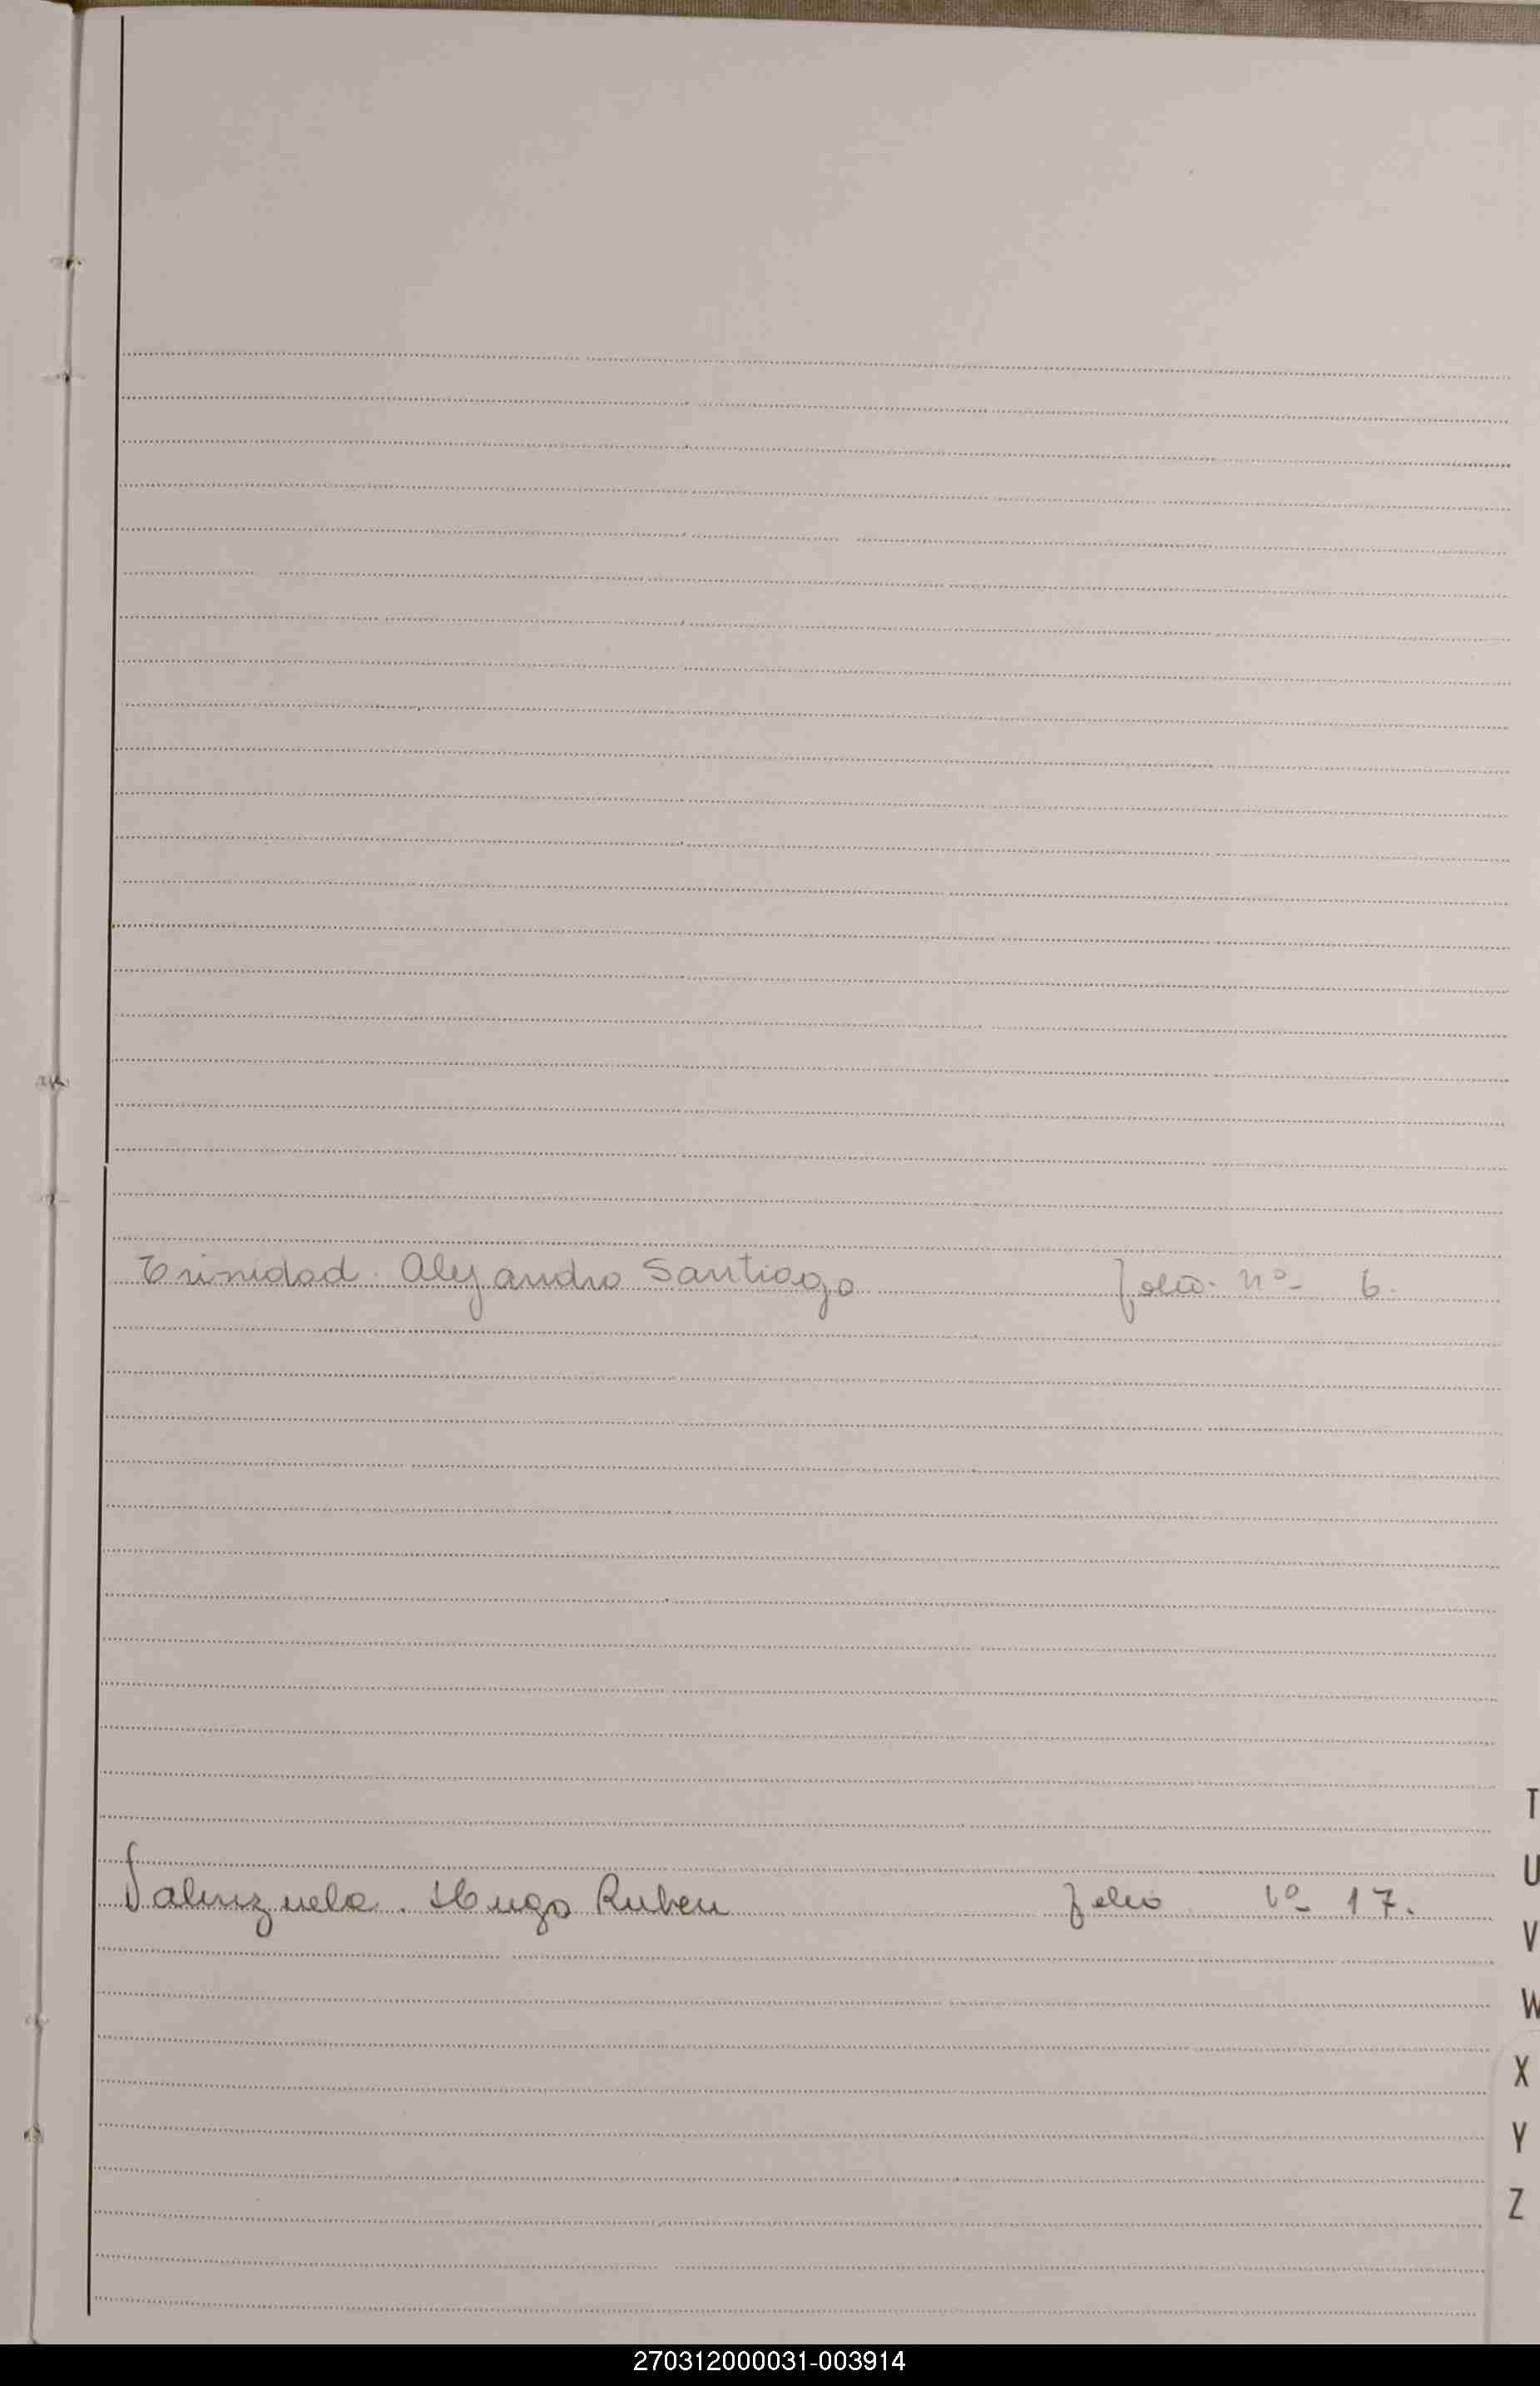 Trinidad. Alejandro Santiago folio. nº 6.
T
U
Valenzuela. Hugo Ruben folio Nº 17.
V
W
X
Y
Z
270312000031-003914